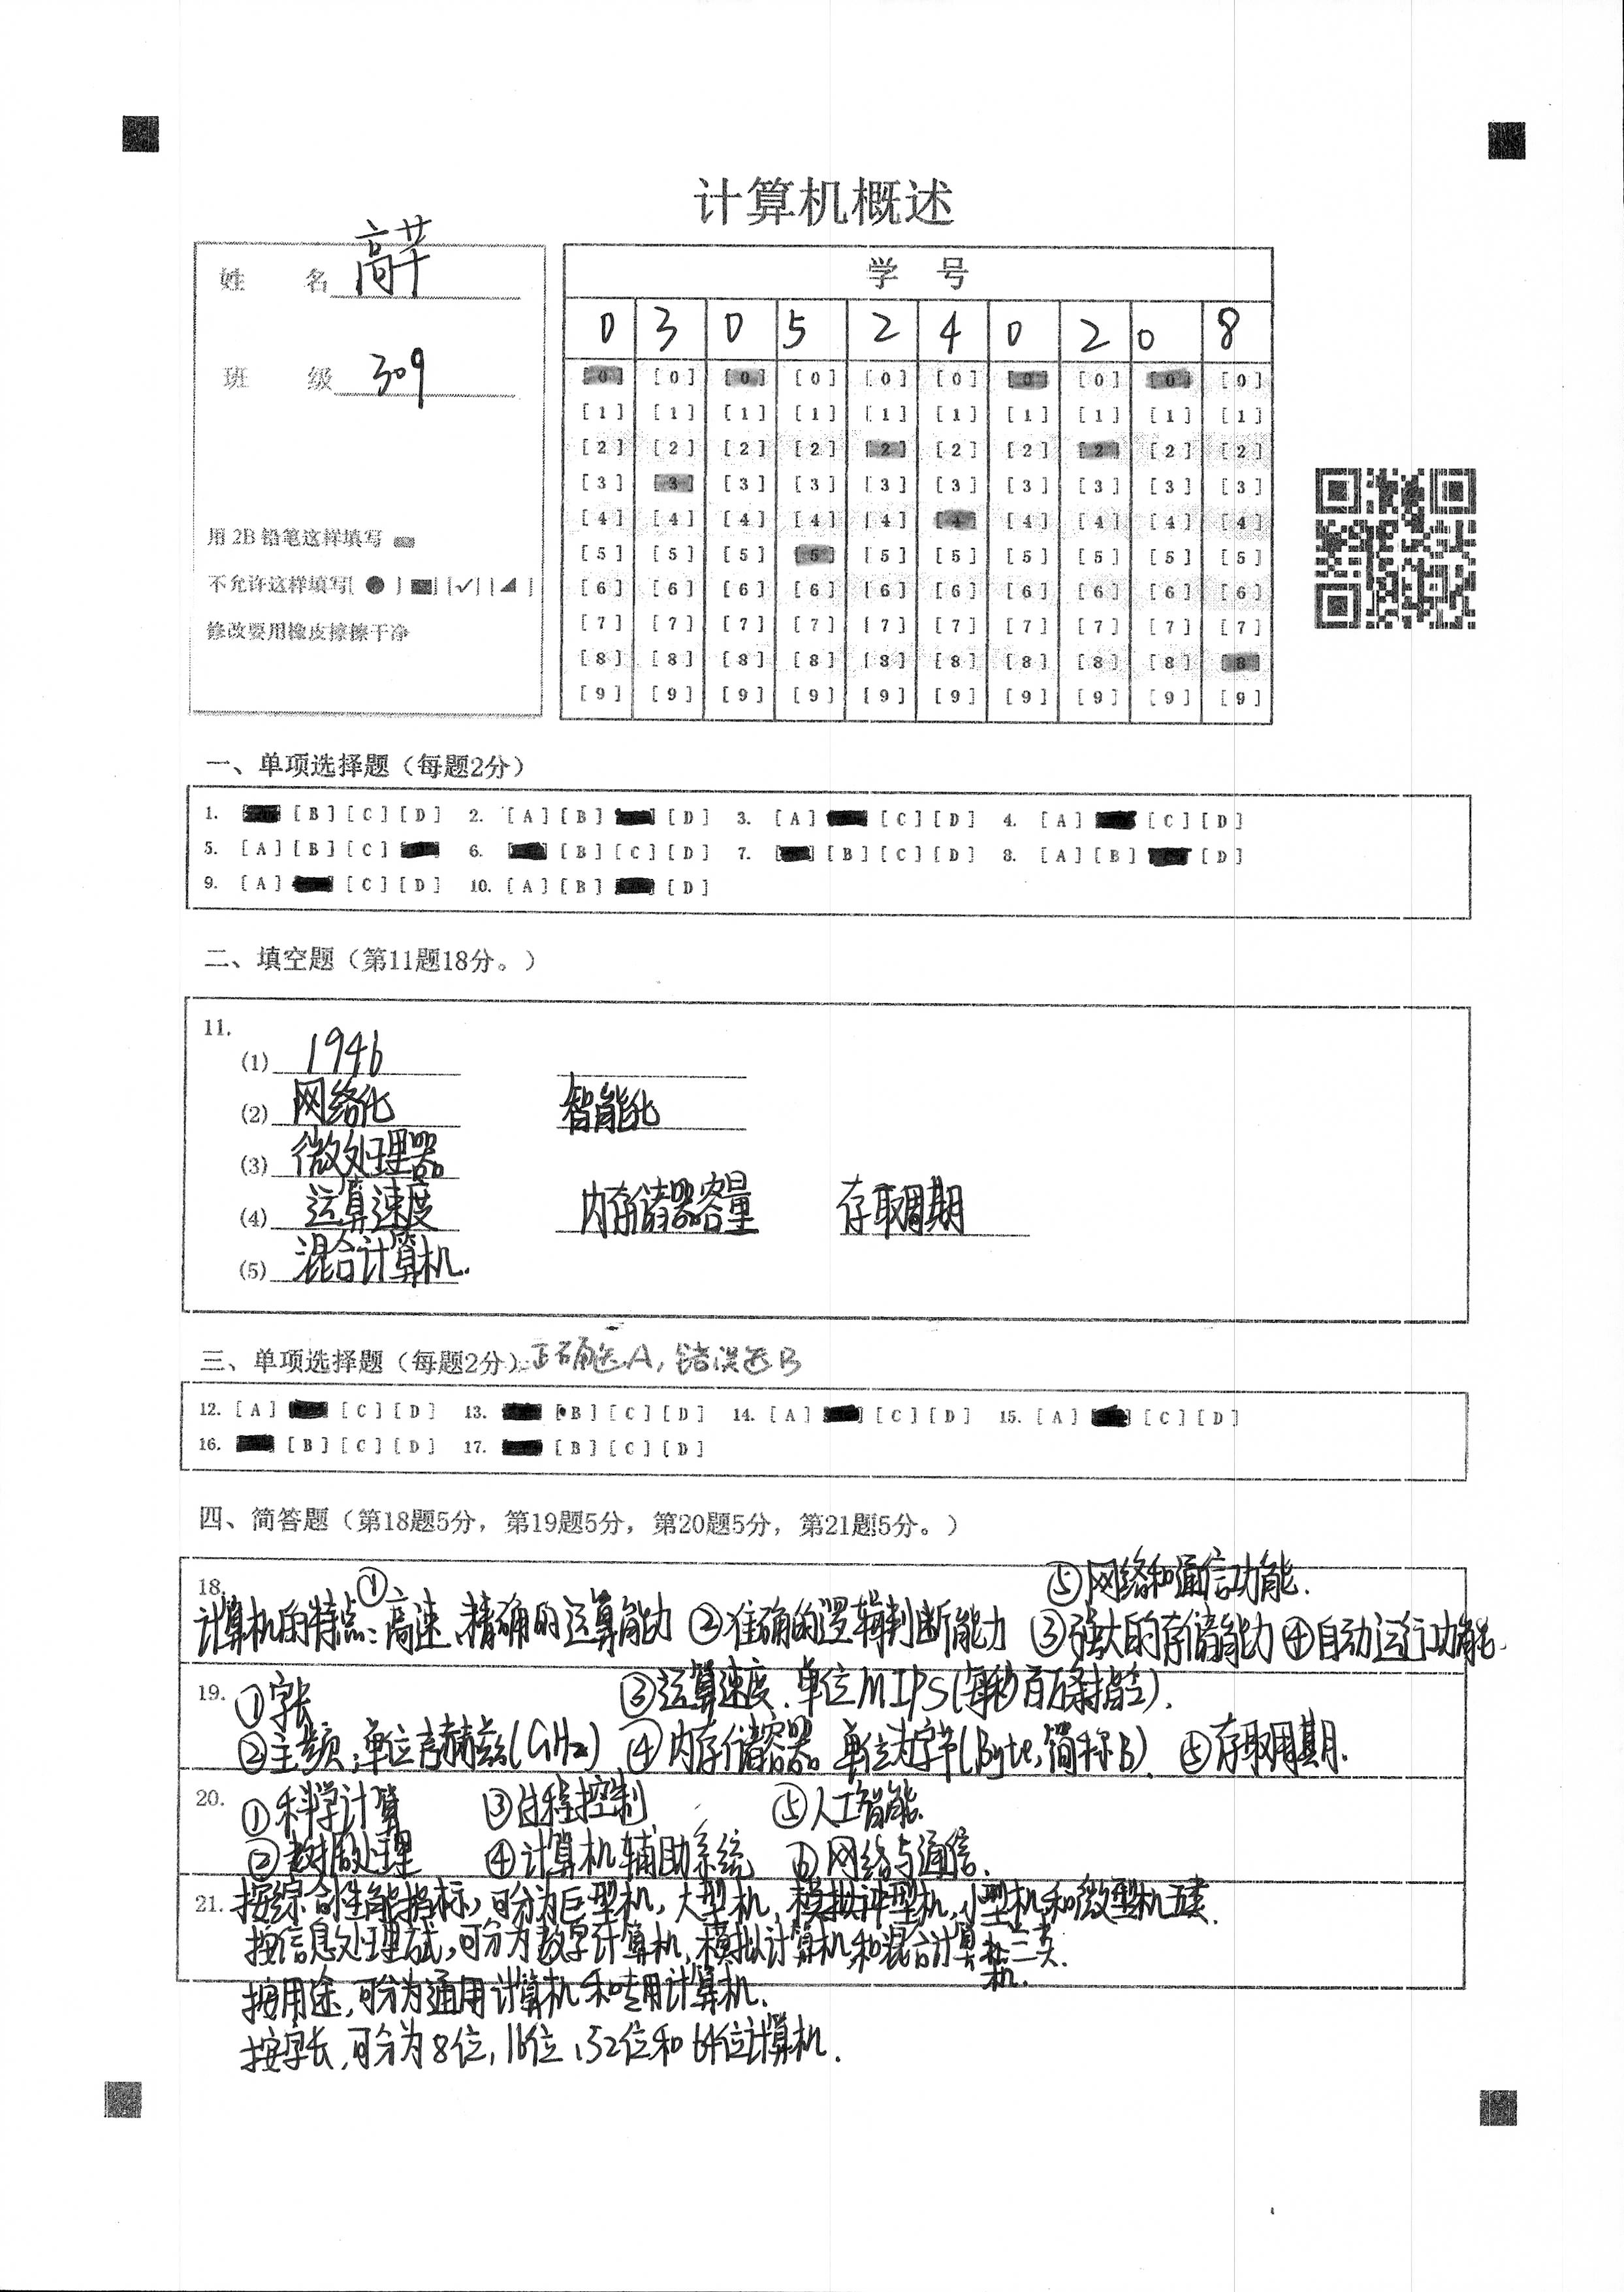 计算机概述
姓 名 高芊
班 级 309
用 2B 铅笔这样填写
不允许这样填写[ ● ] [■] [✓] [◢ ]
修改要用橡皮擦擦干净
学 号
0 3 0 5 2 4 0 2 0 8
[0] [0] [0] [0] [0] [0] [0] [0] [0] [0]
[1] [1] [1] [1] [1] [1] [1] [1] [1] [1]
[2] [2] [2] [2] [2] [2] [2] [2] [2] [2]
[3] [3] [3] [3] [3] [3] [3] [3] [3] [3]
[4] [4] [4] [4] [4] [4] [4] [4] [4] [4]
[5] [5] [5] [5] [5] [5] [5] [5] [5] [5]
[6] [6] [6] [6] [6] [6] [6] [6] [6] [6]
[7] [7] [7] [7] [7] [7] [7] [7] [7] [7]
[8] [8] [8] [8] [8] [8] [8] [8] [8] [8]
[9] [9] [9] [9] [9] [9] [9] [9] [9] [9]
一、单项选择题（每题2分）
1. [B] [C] [D] 2. [A] [B] [D] 3. [A] [C] [D] 4. [A] [C] [D]
5. [A] [B] [C] 6. [B] [C] [D] 7. [B] [C] [D] 8. [A] [B] [D]
9. [A] [C] [D] 10. [A] [B] [D]
二、填空题（第11题18分。）
11.
(1) 1946
(2) 网络化 智能化
(3) 微处理器
(4) 运算速度 内存储器容量 存取周期
(5) 混合计算机.
三、单项选择题（每题2分）正确选A, 错误选B
12. [A] [C] [D] 13. [B] [C] [D] 14. [A] [C] [D] 15. [A] [C] [D]
16. [B] [C] [D] 17. [B] [C] [D]
四、简答题（第18题5分，第19题5分，第20题5分，第21题5分。）
⑤网络和通信功能.
18.
计算机的特点：①高速、精确的运算能力 ②准确的逻辑判断能力 ③强大的存储能力 ④自动运行功能.
19. ①字长 ③运算速度. 单位MIPS(每秒百万条指令).
②主频,单位吉赫兹(GHz) ④内存储容器 单位为字节(Byte,简称B). ⑤存取周期.
20. ①科学计算 ③过程控制 ⑤人工智能.
②数据处理 ④计算机辅助系统 ⑥网络与通信.
21. 按综合性能指标, 可分为巨型机, 大型机, 中型机, 小型机和微型机五类.
按信息处理方式, 可分为数字计算机, 模拟计算机和混合计算机三类.
按用途, 可分为通用计算机和专用计算机.
按字长, 可分为8位, 16位, 32位和64位计算机.